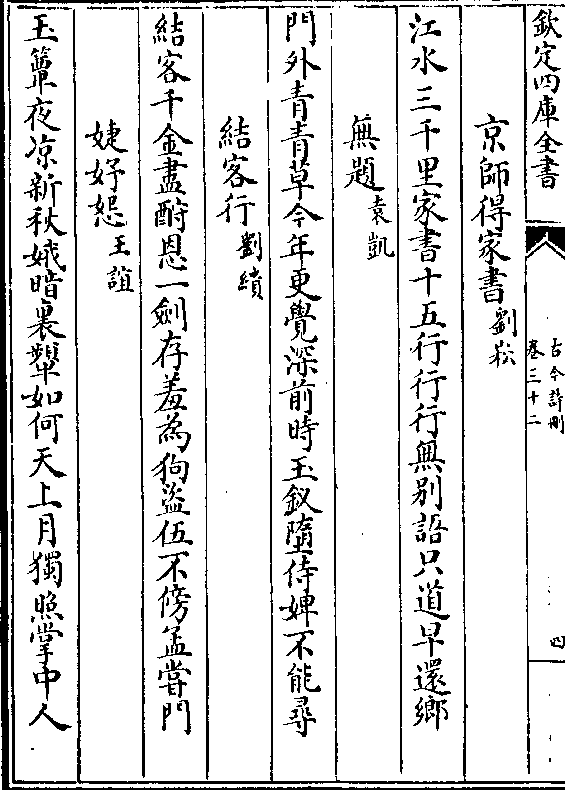 欽定四庫全書
古今詩刪
卷三十二
四
京師得家書 劉崧
江水三千里家書十五行行行無别語只道早還鄉
無題 袁凱
門外青青草今年更覺深前時玉釵墮侍婢不能尋
結客行 劉績
結客千金盡酧恩一劍存羞為狗盜伍不傍孟嘗門
婕妤怨 王誼
玉簟夜凉新秋娥暗裏顰如何天上月獨照掌中人